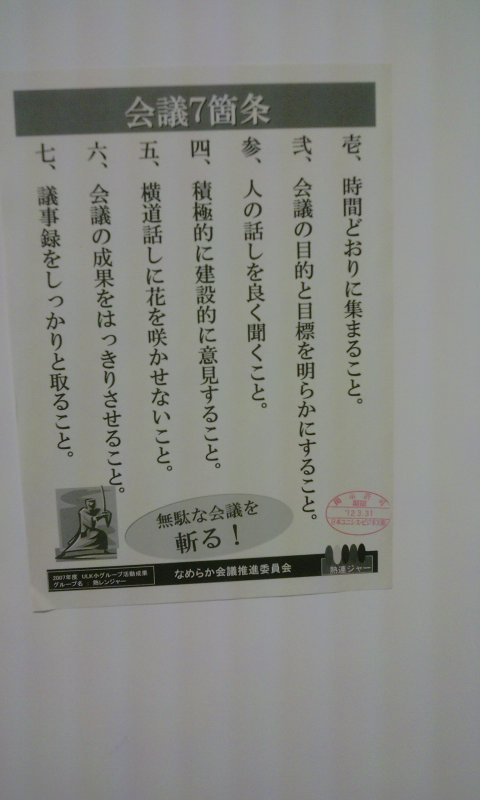 会議7箇条
壱、時間どおりに集まること。
弐、会議の目的と目標を明らかにすること。
参、人の話しを良く聞くこと。
四、積極的に建設的に意見すること。
五、横道話しに花を咲かせないこと。
六、会議の成果をはっきりさせること。
七、議事録をしっかりと取ること。
無駄な会議を
斬る!
掲示許可
期限
'12.3.31
2007年度 ULK小グループ活動成果
グループ名 : 熱レンジャー
なめらか会議推進委員会
熱連ジャー